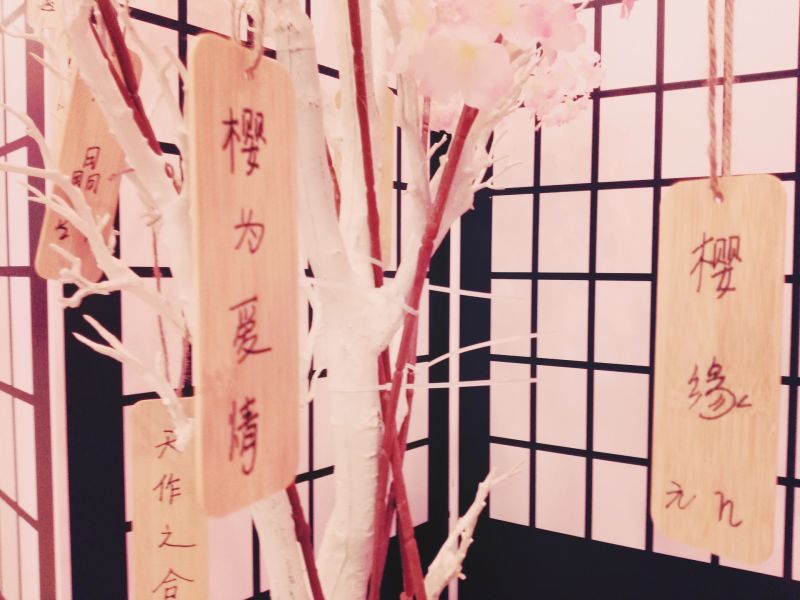 樱为爱情
天作之合
樱缘